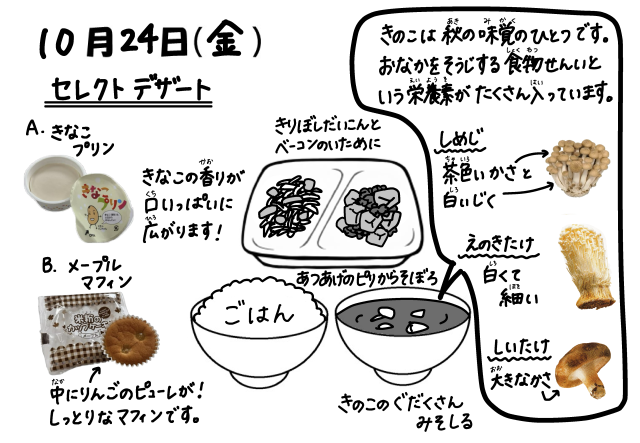 10月24日(金)
セレクト デザート
A. きなこ
プリン
きなこ
プリン
きなこの香りが
口いっぱいに
広がります!
B. メープル
マフィン
米粉の
カップケーキ
中にりんごのピューレが!
しっとりなマフィンです。
きりぼしだいこんと
ベーコンのいために
あつあげのピリからそぼろ
ごはん
きのこのぐだくさん
みそしる
きのこは秋の味覚のひとつです。
おなかをそうじする食物せんいと
いう栄養素がたくさん入っています。
しめじ
茶色いかさと
白いじく
えのきたけ
白くて
細い
しいたけ
大きなかさ